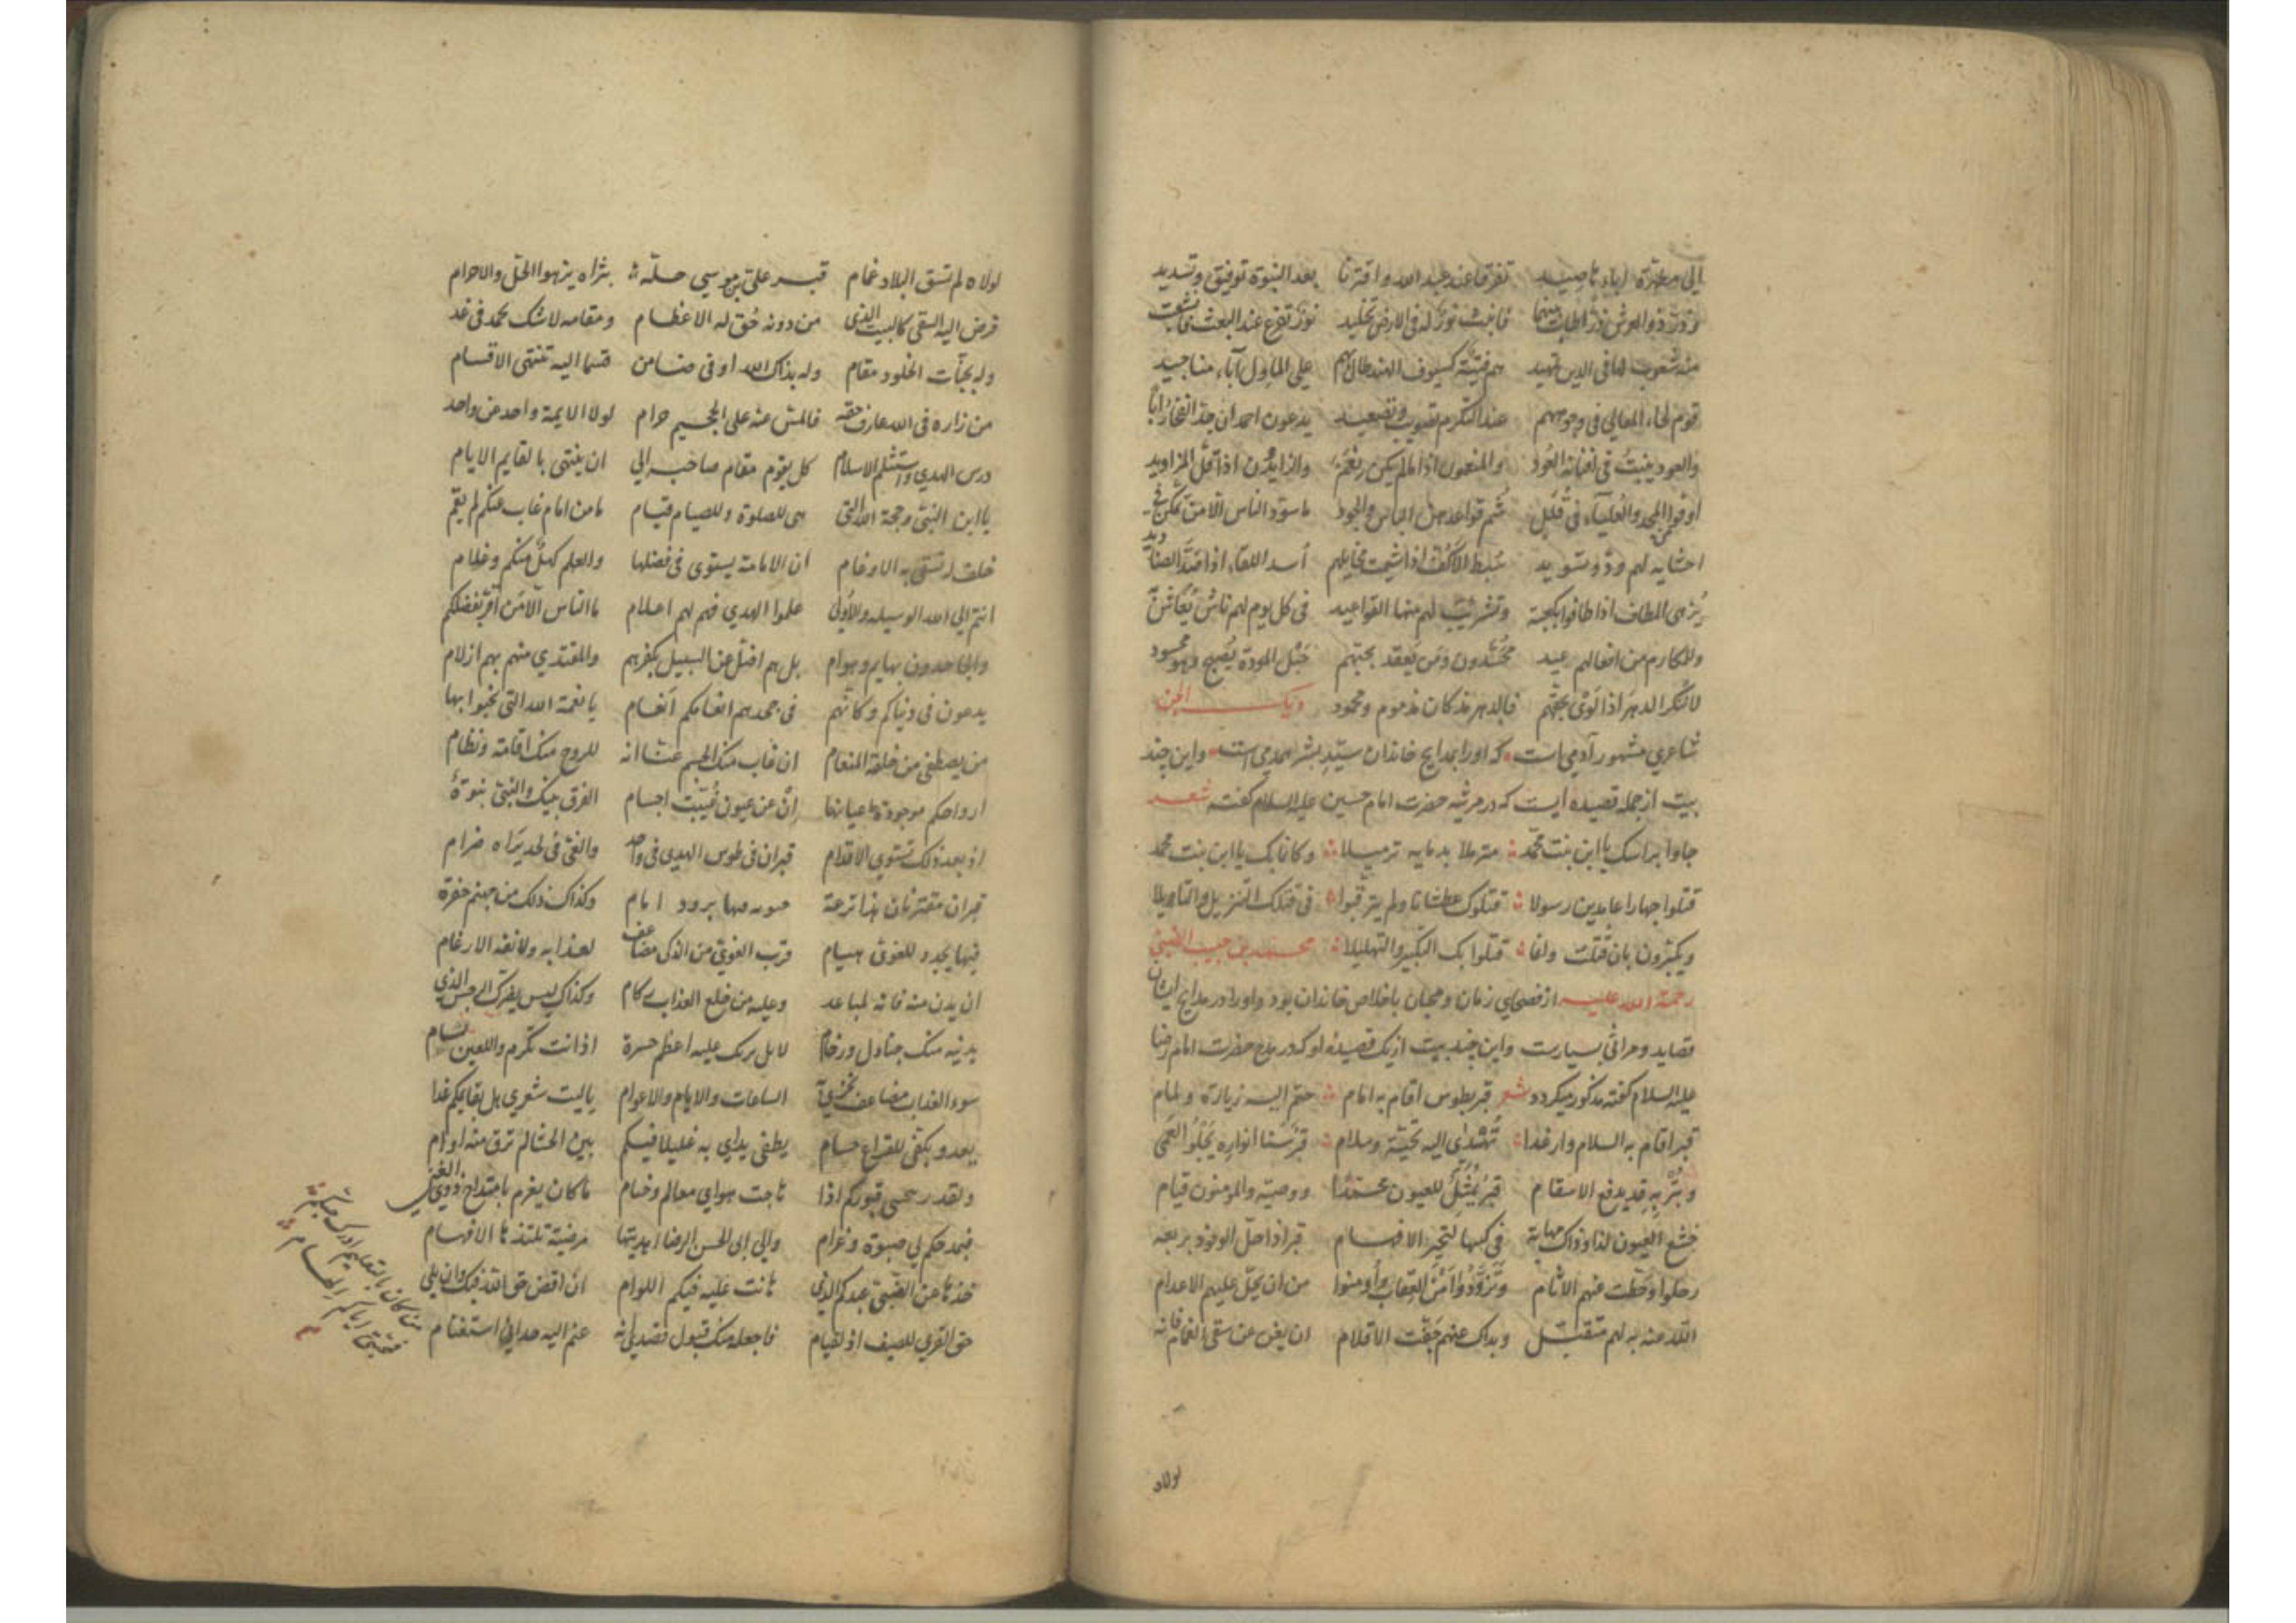 الي مطهرة اباء ناصيد تفرقا عند عبد الله واقترنا بعد النبوة توفيق وتسديد
وذر ذو العرش ذرا طاب بينهما فانبث نور له في الارض تخليد نور تفرع عند البعث
منه شعوب لها في الدين تمهيد هم فتية كسيوف الهند طال بهم علي المطاول آباء مناجيد
قوم لماء المعالي في وجوههم عند التكرم تصويب وتصعيد يدعون احمد ان جد الفخار ابا
والعود ينبت في افنانه العود والمنعمون اذا ما لم يكن نعم والزايدون اذا قل المزاويد
اوفوا من المجد والعلياء في قلل شم قواعدهن الباس والجود ما سود الناس الا من تمكن في
احشايه لهم ود وتسويد سبط الاكف اذا شيمت مخايلهم اسد اللقاء اذا صد الصناديد
يزهى المطاف اذا طافوا بكعبته وتشرئب لهم منها القواعيد في كل يوم لهم ناس
وللمكارم من افعالهم عيد محسدون ومن يعقد بحبهم حبل المودة يصبح وهو محسود
لا تنكر الدهر اذا لوى بحقهم فالدهر مذ كان مذموم ومحمود ديك الجن
شاعري مشهور آدمي است كه اورا بمدايح خاندان سيد بشر همدمي است واين چند
بيت از جمله قصيده ايست كه در مرثيه حضرت امام حسين عليه السلام گفته شعر
جاوا براسك يا ابن بنت محمد مترملا بدمايه ترميلا وكانما بك يا ابن بنت محمد
قتلوا جهارا عامدين رسولا قتلوك عطشانا ولم يترقبوا في قتلك التنزيل والتاويلا
ويكبرون بان قتلت وانما قتلوا بك التكبير والتهليلا محمد بن حبيب الضبي
رحمة الله عليه از فصحاي زمان ومحبان با خلاص خاندان بود واورا در مدايح ايشان
قصايد ومراثي بسيارست واين چند بيت از يك قصيدهٔ او كه در مدح حضرت امام رضا
عليه السلام گفته مذكور ميكردد شعر قبر بطوس اقام به امام حتم اليه زيارة ولمام
قبر اقام به السلام وار غدا تهدي اليه تحية وسلام قبر سنا انواره يجلو العمى
وبتربه قد يدفع الاسقام قبر يمثل للعيون محمدا ووصيه والمومنون قيام
خشع العيون لذا وذاك مهابة في كنهها لتحير الافهام قبر اذا حل الوفود بربعه
رحلوا وحطت عنهم الاثام وتزودوا امن العقاب واومنوا من ان يحل عليهم الاعدام
الله عنه به لهم متقبل وبذاك عنهم جفت الاقلام ان يغن عن سقي الغمام فانه
لولاه
لولاه لم تسق البلاد غمام قبر علي بن موسي حله بثراه يزهوا الحل والاحرام
فرض اليه السعى كالبيت الذي من دونه حق له الاعظام ومقامه لا شك محمد في غد
وله بجنات الخلود مقام وله بذاك الله اوفى ضامن قسما اليه تنتهي الاقسام
من زاره في الله عارف حقه فالمس منه على الجحيم حرام لولا الايمة واحد عن واحد
درس الهدي واستسلم الاسلام كل يقوم مقام صاحبه الي ان ينتهي بالقايم الايام
يا ابن النبي وحجة الله التي هي للصلوة وللصيام قيام ما من امام غاب عنكم لم يقم
خلف له تشفى به الاوغام ان الامامة يستوى في فضلها والعلم كهل منكم وغلام
انتم الي الله الوسيله والاولى علموا الهدي فهم لهم اعلام ما الناس الا من اقر بفضلكم
والجاحدون بهايم وهوام بل هم اضل عن السبيل بكفرهم والمقتدي منهم بهم ازلام
يدعون في دنياكم وكانهم في جحدهم انعامكم انعام يا نعمة الله التي يحبوا بها
من يصطفي من خلقه المنعام ان غاب منك الجسم عنا انه للروح منك اقامة ونظام
ارواحكم موجودة اعيانها ان عن عيون غيبت اجسام الفرق بينك والنبي نبوة
اذ بعد ذلك تستوي الاقدام قبران في طوس الهدي في واحد والغي في لحد يراه ضرام
قبران مقترنان هذا ترعة امام وكذاك ذلك من جهنم حفرة
فيها يجدد للغوى هيام قرب الغوي من الذكي مضاعف لعذابه ولانفه الارغام
ان يدن منه فانه لمباعد وعليه من خلع العذاب ركام وكذاك ليس يضرك الرجس الذي
يدنيه منك جنادل ورخام لا بل يريك عليه اعظم حسرة اذ انت تكرم واللعين يسام
سوء العذاب مضاعف تجري به الساعات والايام والاعوام يا ليت شعري هل بقايمكم غدا
يغدو بكفي للقراع حسام يطفي يداي به غليلا فيكم بين الحشا لم ترق منه اوام
ولقد يهيجني قبوركم اذا هاجت هواي معالم وخيام ما كان يغرم بامتداح ذوي الغنى
فبمدحكم لي صبوة وغرام والي ابي الحسن الرضا اهديتها مرضية تلتذها الافهام
خذها عن الضبي عبدكم الذي هانت عليه فيكم اللوام ان اقض حق الله فيك وان لي
حق القري للضيف اذ لقيام فاجعله منك قبول قصدي انه غنم اليه حداني استغنام
من كان بالتعليم ادرك حبكم
فمحبتي اياكم الهام